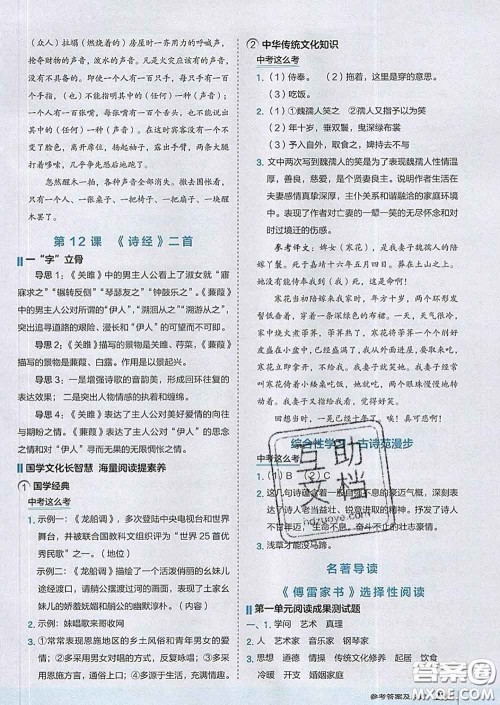 (众人)拉塌(燃烧着的)房屋时一齐用力的呼喊声,
抢夺财物的声音,泼水的声音。凡是火灾应该有的声音,
没有一样没有的。即使一个人有一百只手,每只手有一百
个指头,(也)不能指明其中的(任何)一种(声音)来;
一个人有一百张嘴,每张嘴有一百个舌头,也不能说出
其中的(任何)一种(声音)。在这时,客人们没有不
脸色,离开席位,扬起袖子,露出手臂,两条大腿
哆嗦打抖,几乎争先恐后地跑了。
忽然醒木一拍,各种声音全部消失。撤去围帐看,
只有一个人、一张桌子、一把椅子、一把扇子、一块
醒木罢了。
第12课 《诗经》二首
一“字”立骨
导思1:《关雎》中的男主人公看上了淑女就“寤
寐求之”“辗转反侧”“琴瑟友之”“钟鼓乐之”。《蒹葭》
中的男主人公对所谓的“伊人”,“溯洄从之”“溯游从之”,
突出追寻道路的艰险、漫长和“伊人”的可望而不可即。
导思2:《关雎》描写的景物是关雎、荇菜,《蒹葭》
描写的景物是蒹葭、白露。作用是以景起兴。
导思3:一是增强诗歌的音韵美,形成回环往复的
表达效果;二是突出人物情感。
导思4:《关雎》表达了主人公对美好爱情的向往
与期盼之情。《蒹葭》表达了主人公对“伊人”的爱慕
之情和对“伊人”寻而无果的无限惆怅之情。
国学文化长智慧 海量阅读提素养
① 国学经典
中考这么考
2. 示例一:《龙船调》,多次登陆中央电视台和世界
舞台,并被联合国教科文组织评为“世界25首优
秀民歌”之一。(地位)
示例二:《龙船调》描写了一个活泼俏丽的幺妹
儿途经渡口,请艄公摆渡过河的画面,表现了土家幺
妹儿的娇羞妩媚和艄公的幽默淳朴。(内容)
示例:妹唱歌来哥收网
3. ①常常表现恩施地区的乡土风俗和青年男女的爱
情;②多采用男女对唱的方式,表现力强;③在
恩施地区广泛传唱,极大丰富了人们的生活情趣。
② 中华传统文化知识
中考这么考
1. (1)侍奉。 (2)拖着,这里是穿的意思。
(3)吃饭。
2. (1)①魏孺人笑之 ②孺人又指予以为笑
(2)年十岁,垂双鬟,曳深绿布裳
(3)予入自外,取食之,婢持去不与
3. 文中两次写到魏孺人的笑是为了表现魏孺人性情温
厚,善良,慈爱,是个贤良淑德之人。说明作者生活在
夫妻感情真挚深厚,主仆关系和谐融洽的家庭环境
中。表现了作者对亡妻的一颦一笑的无尽怀念和对
时过境迁的感慨。
参考译文:婢女(寒花),是我妻子魏孺人的陪
嫁丫鬟。死于嘉靖十六年五月四日。葬在土山之上。
她没有能够侍奉我到底(我)死,这是命啊!
寒花当初陪嫁来我家时,年方十岁,两个环形发
髻低垂着,穿着一条深绿色的布裙。一天,天气很冷,
家中烧火煮荸荠,寒花将已煮熟的荸荠一个个削好
皮盛在小瓦盆中,已盛满了,我刚从外面进屋,取来
就吃;寒花立即拿开,不给我。我妻子就笑她这种样子。
我妻子经常叫寒花倚着小矮桌吃饭,她就吃,两个眼
眶慢慢地转动着。我妻子又指给我看,觉得好笑。
回想当时,一晃已经十年了。唉,真可悲啊!
综合性学习 古诗苑漫步
中考这么考
1. (1)B (2)C
2.
3. 浅草才能没马蹄。
名著导读
《傅雷家书》选择性阅读
第一单元阅读成果测试题
一、1. 学问 艺术 真理
2. 人 艺术家 音乐家 钢琴家
3. 思想 道德 情操 传统文化修养 起居 饮食
冷暖 开支 婚姻 家庭
参考答案及
互助
文档
hdzuoye.com
答案圈
MXQE.COM